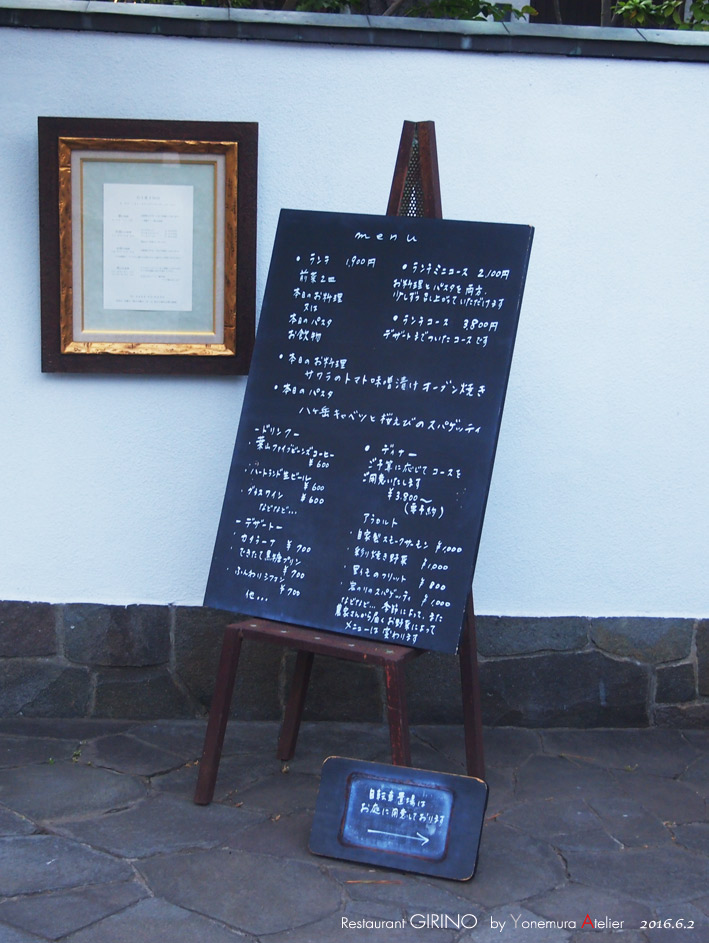 menu
• ランチ 1,900円
前菜2皿
本日のお料理
又は
本日のパスタ
お飲物
• ランチミニコース 2,100円
お料理とパスタを両方、
少しずつ召し上がっていただけます
• ランチコース 3,800円
デザートまでついたコースです
• 本日のお料理
サワラのトマト味噌漬けオーブン焼き
• 本日のパスタ
八ヶ岳キャベツと桜えびのスパゲッティ
ードリンクー
・葉山ファイブビーンズコーヒー
¥600
・ハートランド生ビール
¥600
・グラスワイン
¥600
などなど…
ーデザートー
・カタラーナ ¥700
・できたて黒糖プリン
¥700
・ふんわりシフォン
¥700
他…
• ディナー
ご予算に応じてコースを
ご用意いたします
¥3,800〜
(要予約)
アラカルト
・自家製スモークサーモン ¥1,000
・彩り焼き野菜 ¥1,000
・里いものフリット ¥800
・岩のりのスパゲッティ ¥1,000
などなど… 季節によって、また
農家さんから届くお野菜によって
メニューは変わります
自転車置場は
お庭に用意しております
→
Restaurant GIRINO by Yonemura Atelier 2016.6.2